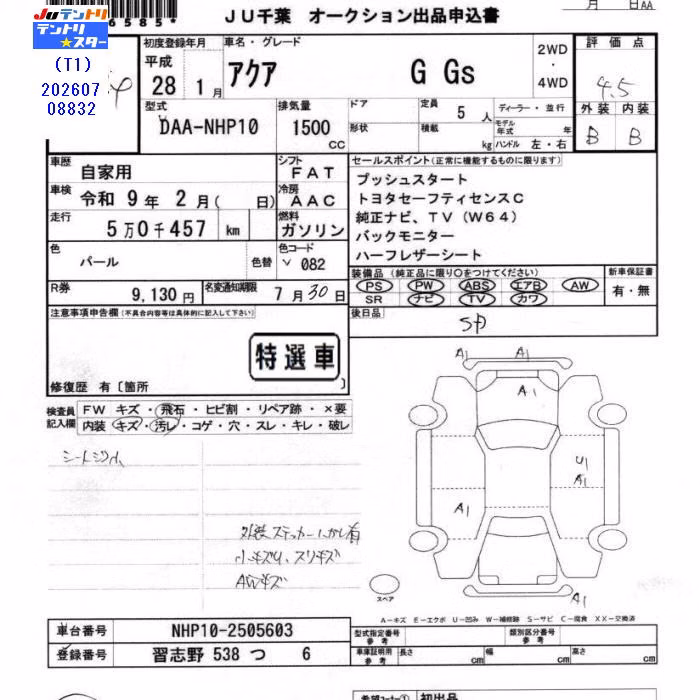 6585*
JU千葉 オークション出品申込書
月 日AA
JUテントリ
テントリ☆スター
(T1)
202607
08832
初度登録年月
平成
28 1月
車名・グレード
アクア G Gs
2WD
・
4WD
評価点
4.5
外装 内装
B B
型式
DAA-NHP10
排気量
1500
CC
ドア
形状
定員 5人
積載 kg
ディーラー・並行
モデル年式 年
ハンドル 左・右
車歴 自家用
シフト FAT
車検 令和 9年 2月( 日)
冷房 AAC
走行 5万0千457 km
燃料 ガソリン
色 パール 色替
色コード 082
R券 9,130円
名変通知期限 7月30日
セールスポイント(正常に機能するものに限ります)
プッシュスタート
トヨタセーフティセンスC
純正ナビ、TV(W64)
バックモニター
ハーフレザーシート
装備品(純正品に限り○をつけてください)
PS PW ABS エアB AW
SR ナビ TV カワ
新車保証書
有・無
後日品
SD
注意事項申告欄(不具合内容等は具体的に記入して下さい)
特選車
修復歴 有〔箇所 〕
検査員記入欄
FW キズ・飛石・ヒビ割・リペア跡・×要
内装 キズ・汚レ・コゲ・穴・スレ・キレ・破レ
シートシミ小
外装ステッカーハガシ有
小キズU、スリキズ
AWキズ
A1 A1
A1
U1
A1
A1
A1
スペア
A-キズ E-エクボ U-凹み W-補修跡 S-サビ C-腐食 XX-交換済
車台番号 NHP10-2505603
登録番号 習志野 538 つ 6
型式指定番号 参考
類別区分番号 参考
車庫証明用 参考
長さ cm 幅 cm 高さ cm
希望コーナー① 初出品